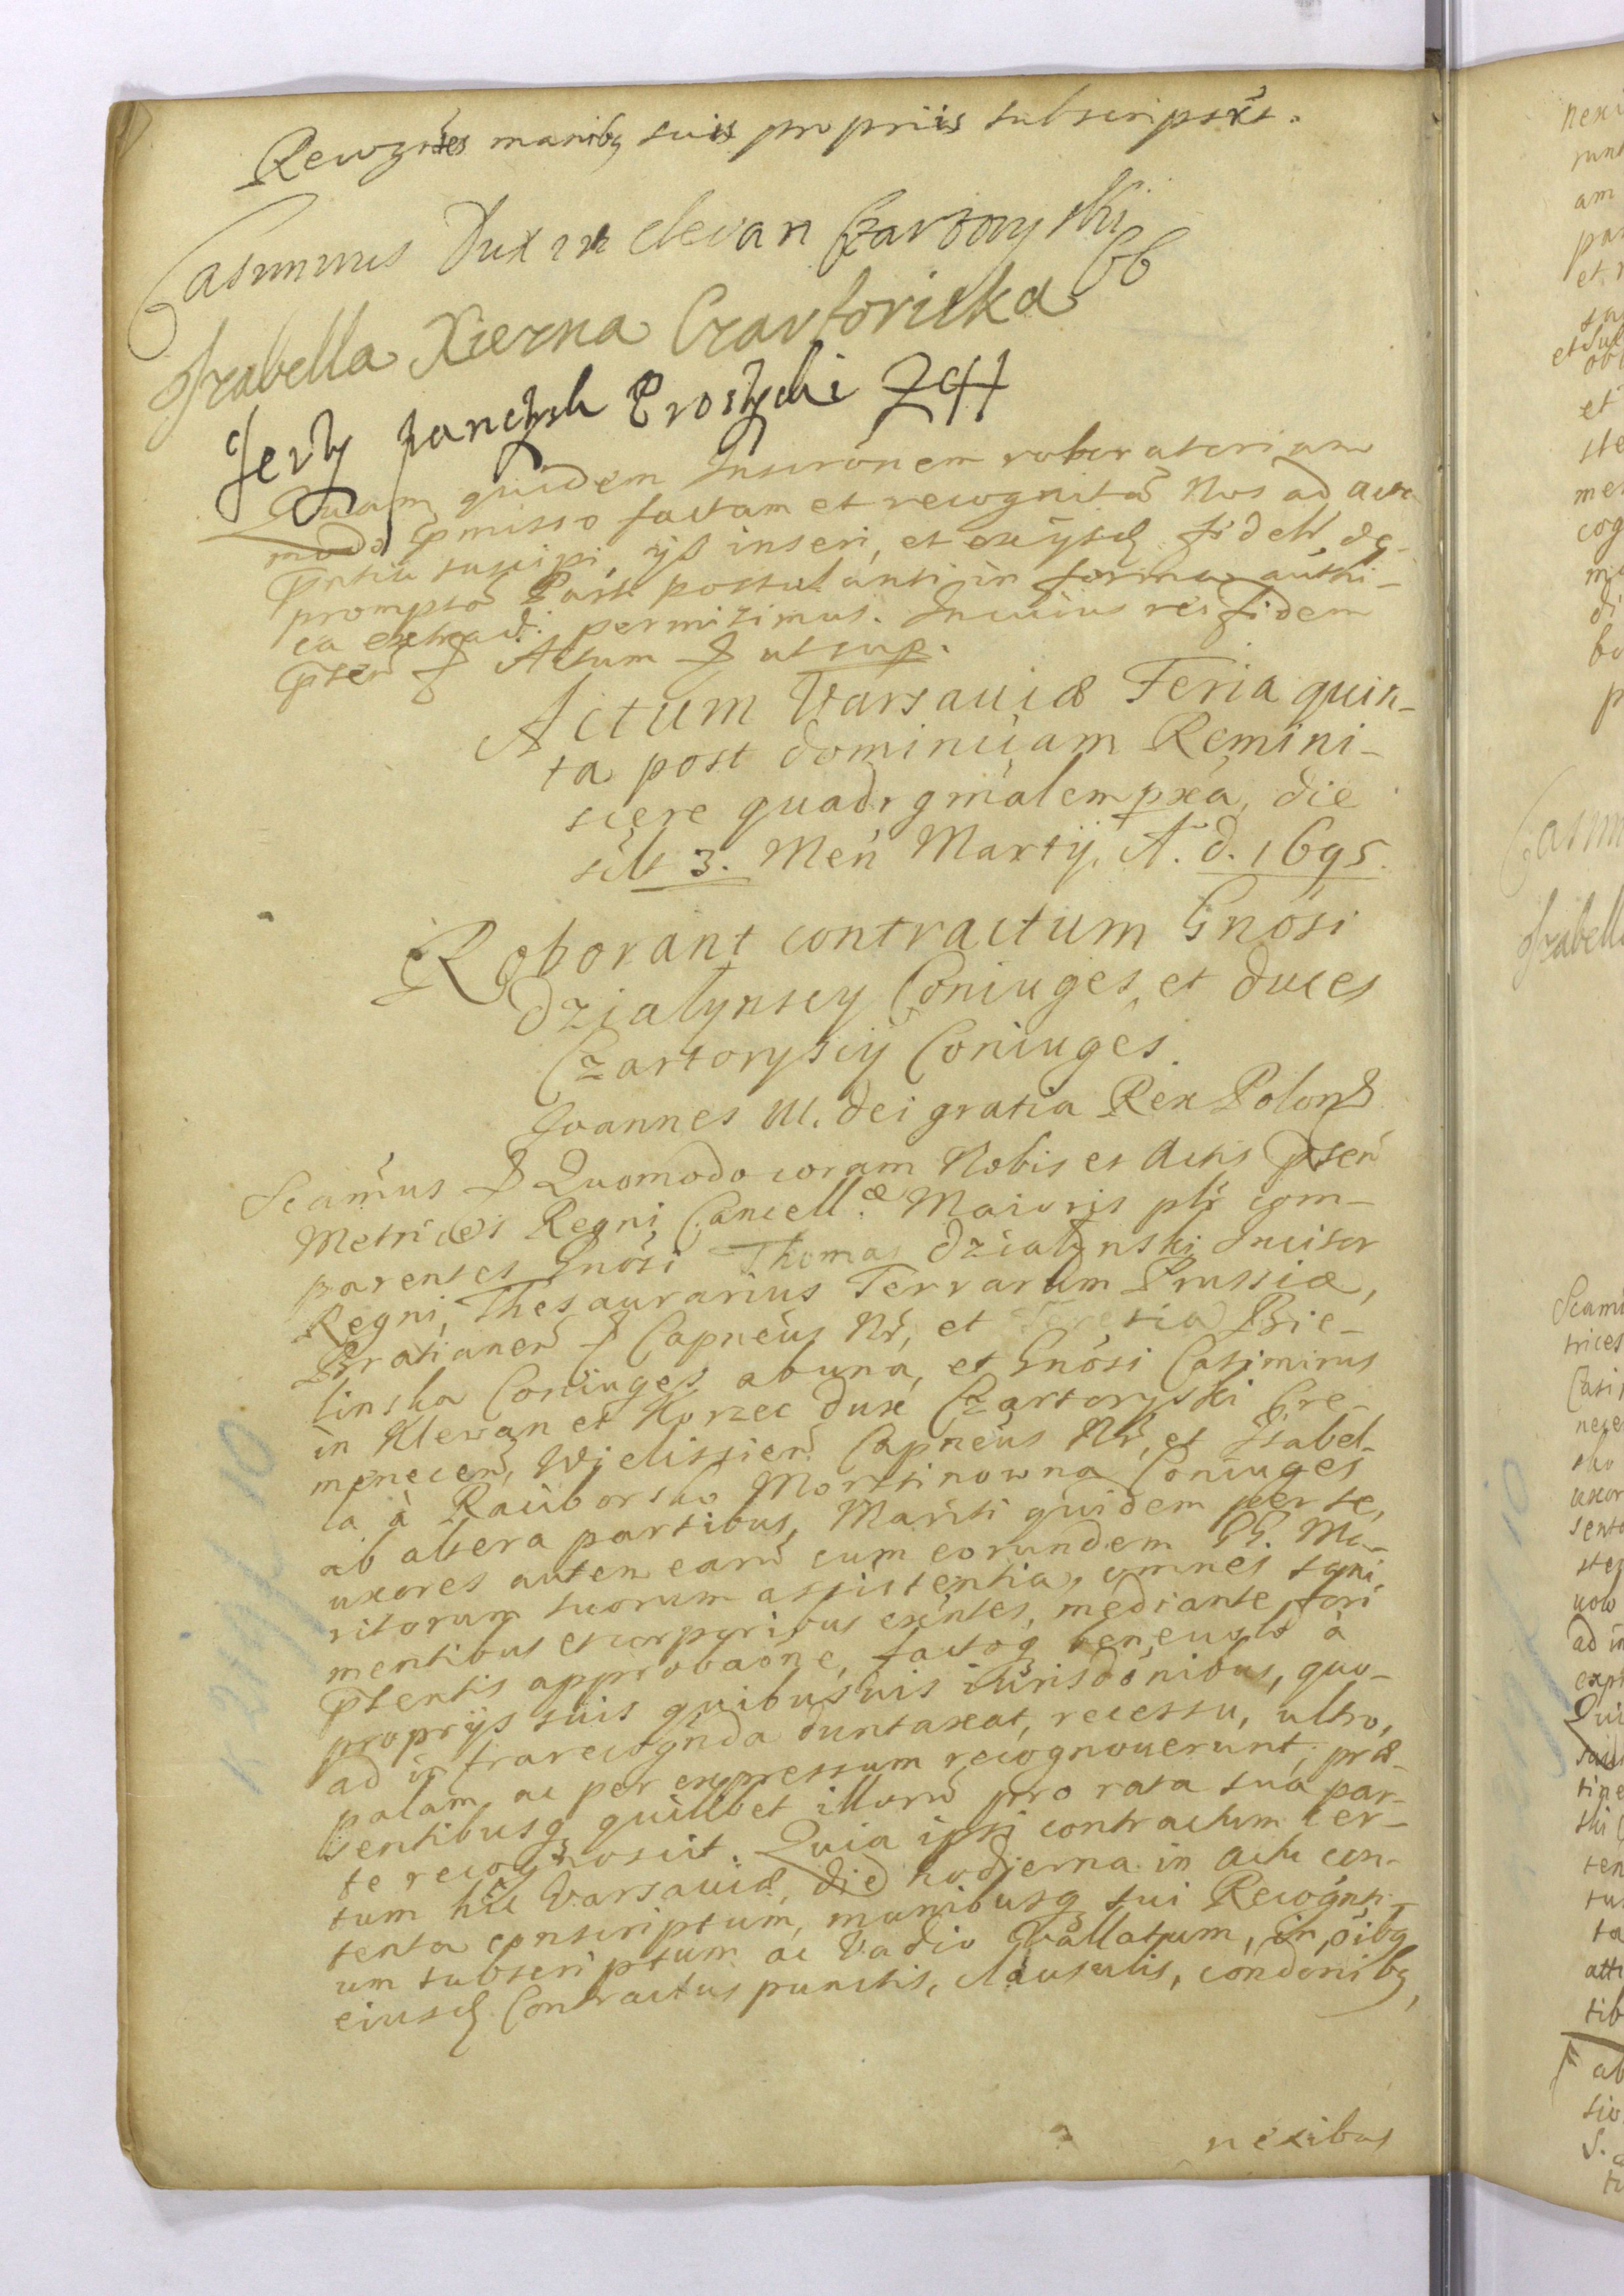 Recogntes manibq suis propriis subscripsert.
Casimirus Dux in clevan Czartoryski
Izabella Xiezna Czartoriska
Jerzy
Quam quidem Inscrōnem roboratoriam
modo pmisso factam et recognitā Nos ad acta
pntia suscipi, ijs inseri, et exijsd fideli de-
prompto Parti postulanti in forma authi-
ca extradi permisimus. In cuius rei fidem
pnsen & Actum & ut sup.
Actum Varsauiæ Feria quin-
ta post dominicam Remini-
scere quadrgmālem pxā, die
silt 3. Men Martij, A. d. 1695.
Roborant contractum Gnōsi
Dzialynscy Coniuges, et duces
Czartoryscij Coniuges.
Joannes III. Dei gratia Rex Polon &
Scāmus & Quomodo coram Nobis et Actis pnsen
Metrices Regni Cancell.æ Maioris plr com-
parentes Gnōsi Thomas Dzialynski Incisor
Regni, Thesaurarius Terrarum Prussiæ,
Bratianen & Capneus Nr, et Teresia Bie-
linska Coniuges ab una, et Gnōsi Casimirus
in Klewan et Korzec dux Czartoryski Cre-
menecen, Wielissien Capneus Nr, et Isabel-
la à Raciborsko Morstinowna Coniuges
ab altera partibus, Mariti quidem per se,
uxores autem earū cum eorundem GG. Ma-
ritorum suorum assistentia, omnes sani
mentibus et corporibus exntes, mediante fori
pntentis approbaōne, factoq beneuolo à
proprijs suis quibusuis iurisdōnibus, quo-
ad infrarecognda duntaxat, recessu, ultro,
palam ac per expressum recognouerunt, præ-
sentibusq quilibet illorū pro rata suā par-
te recognoscit. Quia ipsi contractum cer-
tum hīc Varsauiæ, die hodierna in actu con-
tenta conscriptum, manibusq sui Recognti-
um subscriptum ac vadio vallatum, in oībq
eiusd Contractus punctis, clausulis, condōnibq,
nexibus